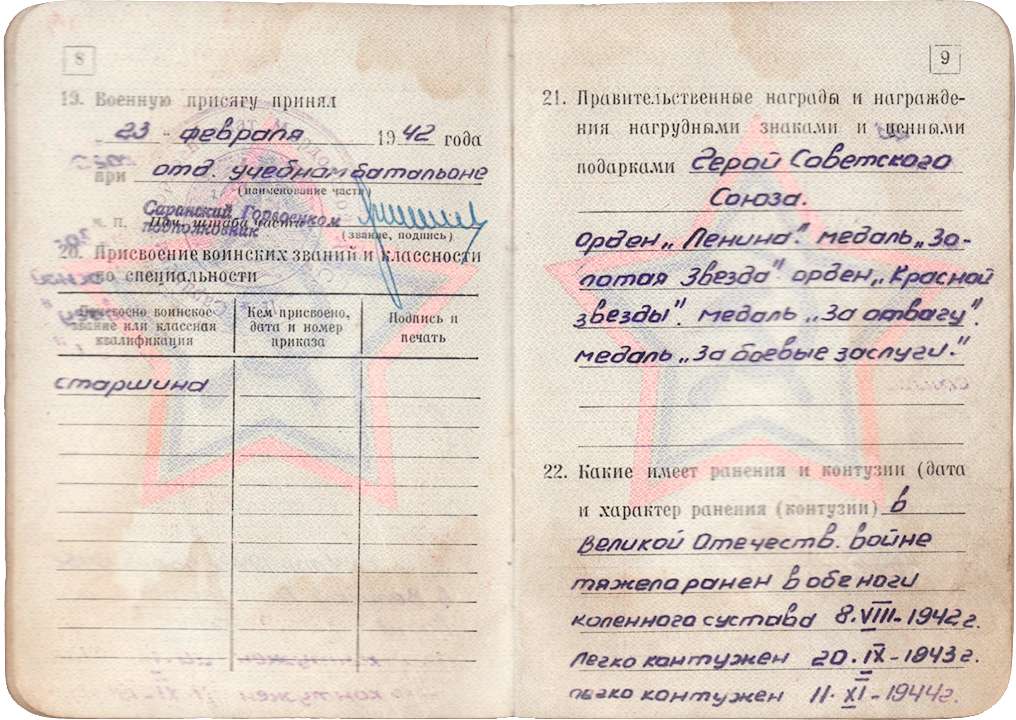 8
19. Военную присягу принял
23 февраля 1942 года
при отд. учебном батальоне
(наименование части)
Саранский Горвоенком
м. п. Нач. штаба части
подполковник
(звание, подпись)
20. Присвоение воинских званий и классности
по специальности
Присвоено воинское
звание или классная
квалификация
Кем присвоено,
дата и номер
приказа
Подпись и
печать
старшина
9
21. Правительственные награды и награжде-
ния нагрудными знаками и ценными
подарками Герой Советского
Союза.
орден „Ленина". медаль „Зо-
лотая Звезда" орден „Красной
звезды". медаль „За отвагу".
медаль „За боевые заслуги."
22. Какие имеет ранения и контузии (дата
и характер ранения (контузии) в
Великой Отечеств. войне
тяжело ранен в обе ноги
коленного сустава 8.VIII-1942г.
легко контужен 20.IX-1943г.
легко контужен 11.XI-1944г.